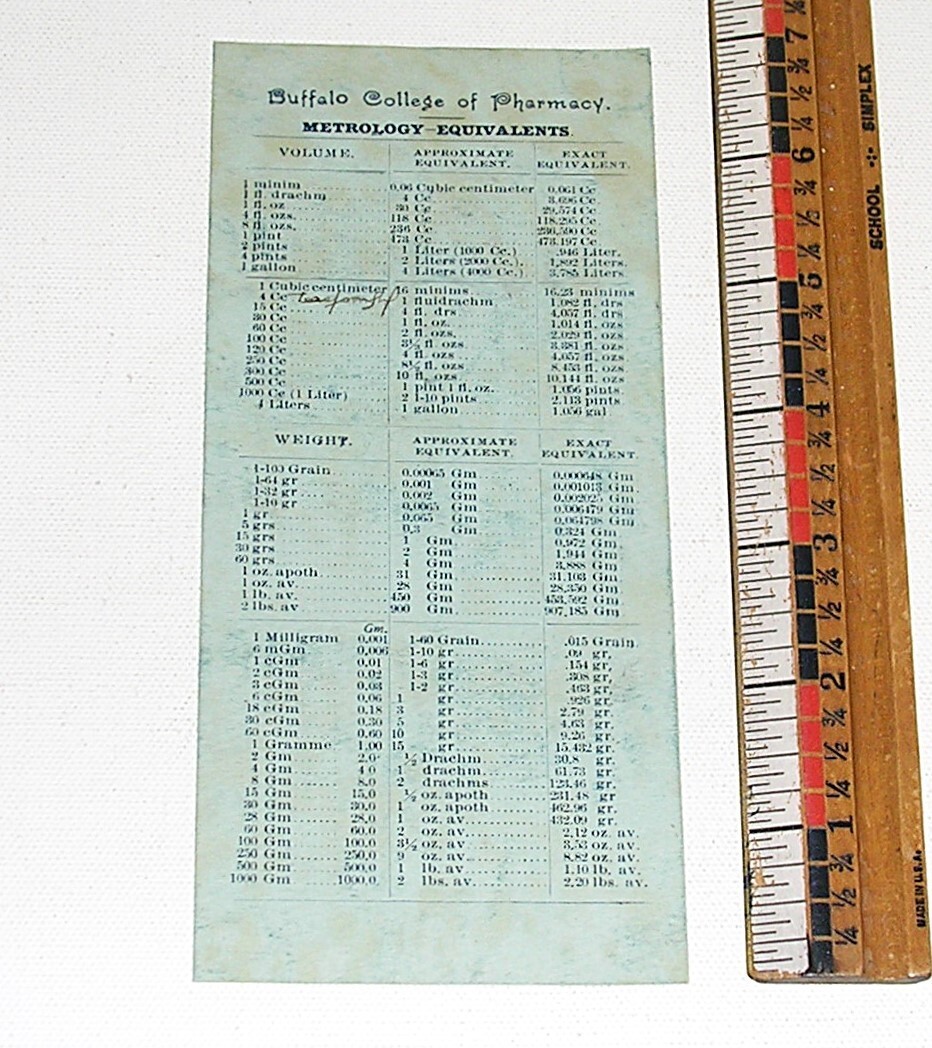 Buffalo College of Pharmacy.
METROLOGY—EQUIVALENTS.
VOLUME. APPROXIMATE EQUIVALENT. EXACT EQUIVALENT.
1 minim 0.06 Cubic centimeter 0.061 Cc
1 fl. drachm 4 Cc 3.696 Cc
1 fl. oz 30 Cc 29.574 Cc
4 fl. ozs. 118 Cc 118.295 Cc
8 fl. ozs. 236 Cc 236.590 Cc
1 pint 473 Cc 473.197 Cc
2 pints 1 Liter (1000 Cc.) .946 Liter.
4 pints 2 Liters (2000 Cc.) 1,892 Liters.
1 gallon 4 Liters (4000 Cc.) 3,785 Liters.
1 Cubic centimeter 16 minims 16.23 minims
4 Cc teaspoonful 1 fluidrachm 1.082 fl. drs
15 Cc 4 fl. drs 4.057 fl. drs
30 Cc 1 fl. oz. 1.014 fl. ozs
60 Cc 2 fl. ozs. 2.029 fl. ozs
100 Cc 3½ fl. ozs 3.381 fl. ozs
120 Cc 4 fl. ozs 4.057 fl. ozs
250 Cc 8½ fl. ozs 8.453 fl. ozs
300 Cc 10 fl. ozs 10.144 fl. ozs
500 Cc 1 pint 1 fl. oz. 1.056 pints
1000 Cc (1 Liter) 2 1-10 pints 2.113 pints
4 Liters 1 gallon 1.056 gal
WEIGHT. APPROXIMATE EQUIVALENT. EXACT EQUIVALENT.
1-100 Grain 0.00065 Gm 0.000648 Gm
1-64 gr 0.001 Gm 0.001013 Gm
1-32 gr 0.002 Gm 0.002025 Gm
1-10 gr 0.0065 Gm 0.006479 Gm
1 gr 0.065 Gm 0.064798 Gm
5 grs 0.3 Gm 0.324 Gm
15 grs 1 Gm 0.972 Gm
30 grs 2 Gm 1.944 Gm
60 grs 4 Gm 3.888 Gm
1 oz. apoth 31 Gm 31.103 Gm
1 oz. av 28 Gm 28.350 Gm
1 lb. av. 450 Gm 453.592 Gm
2 lbs. av 900 Gm 907.185 Gm
Gm.
1 Milligram 0.001 1-60 Grain .015 Grain
6 mGm 0.006 1-10 gr .09 gr.
1 cGm 0.01 1-6 gr .154 gr,
2 cGm 0.02 1-3 gr .308 gr,
3 cGm 0.03 1-2 gr .463 gr,
6 cGm 0.06 1 gr .926 gr.
18 cGm 0.18 3 gr 2.79 gr.
30 cGm 0.30 5 gr 4.63 gr.
60 cGm 0.60 10 gr 9.26 gr.
1 Gramme 1.00 15 gr 15.432 gr.
2 Gm 2.0 ½ Drachm 30.8 gr.
4 Gm 4.0 1 drachm 61.73 gr.
8 Gm 8.0 2 drachms 123.46 gr.
15 Gm 15.0 ½ oz. apoth 231.48 gr
30 Gm 30.0 1 oz. apoth 462.96 gr.
28 Gm 28.0 1 oz. av 432.09 gr.
60 Gm 60.0 2 oz. av 2.12 oz. av.
100 Gm 100.0 3½ oz. av 3.53 oz. av.
250 Gm 250.0 9 oz. av 8.82 oz. av.
500 Gm 500.0 1 lb. av 1.10 lb. av.
1000 Gm 1000.0 2 lbs. av 2.20 lbs. av.
¼
7
¾
½
¼
6
¾
½
¼
5
¾
½
¼
4
¾
½
¼
3
¾
½
¼
2
¾
½
¼
1
¾
½
¼
SCHOOL -:- SIMPLEX
MADE IN U.S.A.